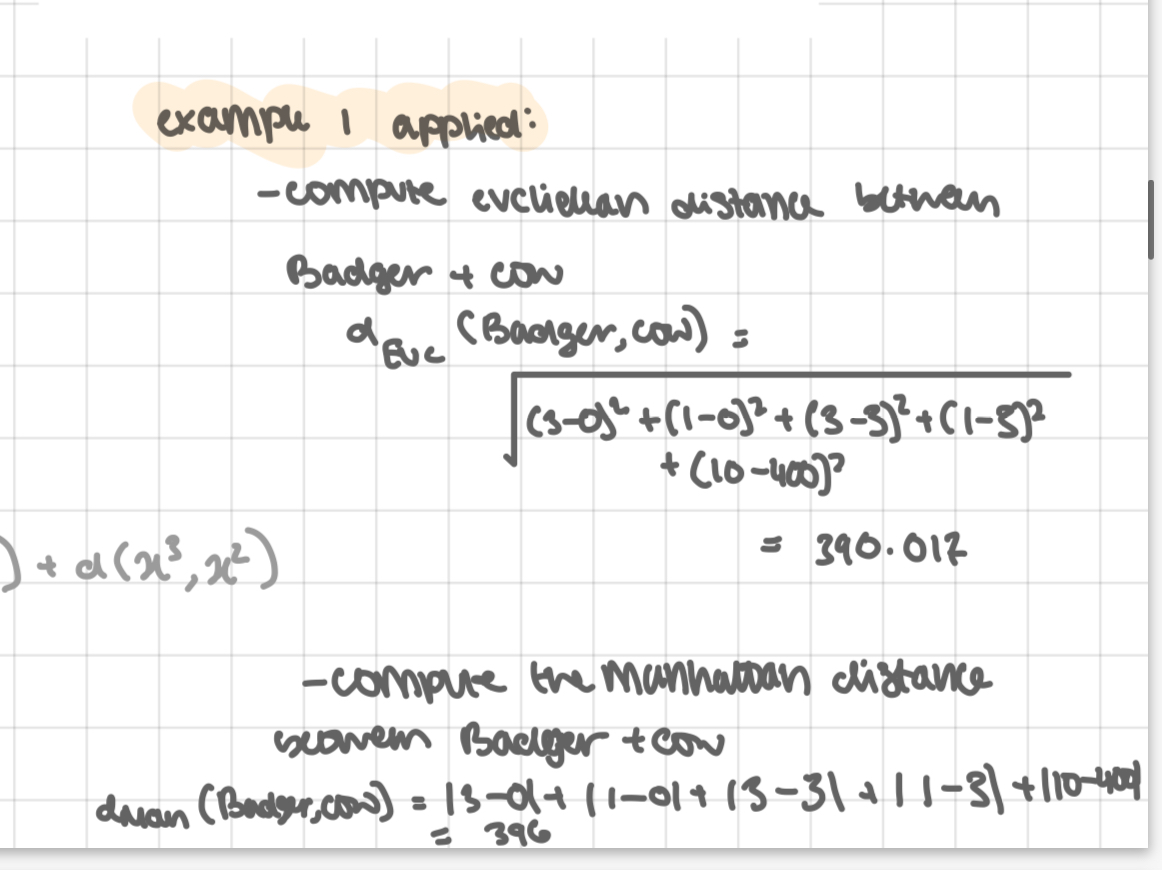 example 1 applied:
-compute euclidean distance between
Badger + cow
d Euc (Badger, cow) =
√(3-0)² + (1-0)² + (3-3)² + (1-3)²
+ (10-400)²
= 390.017
) + d(x³, x²)
-compute the Manhattan distance
between Badger + cow
dMan (Badger, cow) = |3-0| + |1-0| + |3-3| + |1-3| + |10-400|
= 396